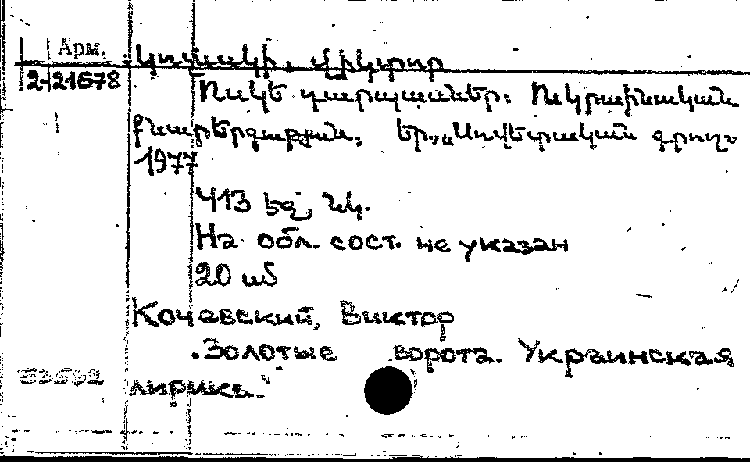 Арм.
2-21678
Կոչևսկի, Վիկտոր
Ոսկե դարպասներ: Ուկրաինական
քնարերգություն, Եր., „Սովետական գրող"
1977
413 էջ, նկ.
На обл. сост. не указан
20 սմ
Кочевский, Виктор
Золотые ворота. Украинская
лирика.